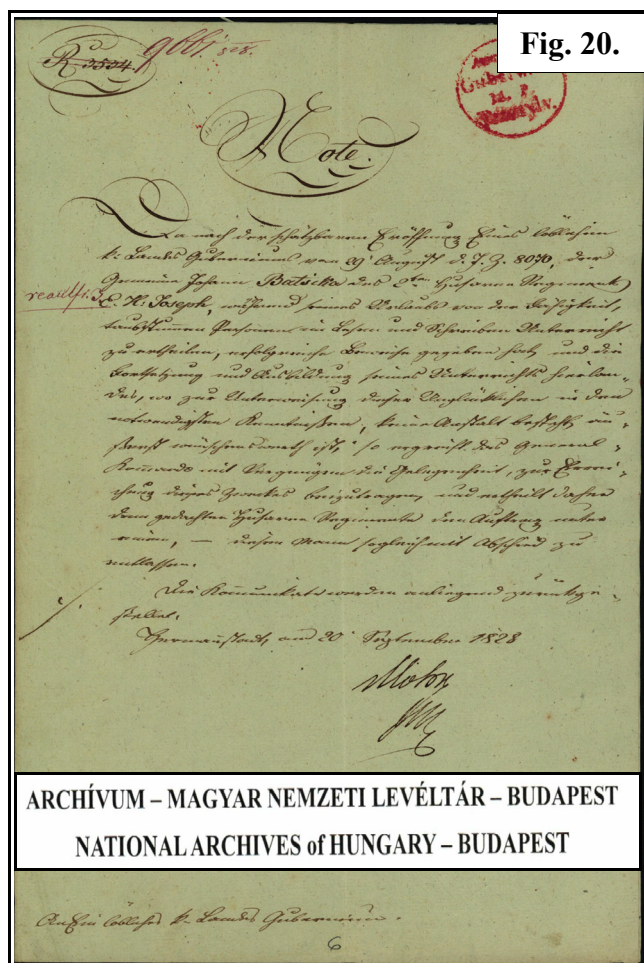 Fig. 20.
R 3534
9661. 828.
Note.
Da nach der schätzbaren Eröffnung Eines löblichen
k: Landes Guberniums vom 29 August d. J. Z. 8070, der
Gemeine Johann Batsika des 2ten Husaren Regiments
E. H. Joseph, während seines Urlaubs von der Fähigkeit,
taubstummen Personen im Lesen und Schreiben Unterricht
zu ertheilen, erfolgreiche Beweise gegeben hat, und die
Fortsetzung und Ausbildung seines Unterrichts hierlan-
des, wo zur Unterweisung dieser Unglücklichen in den
nothwendigsten Kenntnißen, keine Anstalt besteht, äu-
ßerst wünschenswerth ist, so ergreift das General-
Kommando mit Vergnügen die Gelegenheit, zur Errei-
chung dieses Zweckes beizutragen, und ertheilt daher
dem gedachten Husaren Regimente den Auftrag unter
einem, — diesen Mann sogleich mit Abschied zu
entlassen.
Die Kommunikate werden anliegend zurückge-
stellet.
Hermannstadt, am 20 September 1828
ARCHÍVUM – MAGYAR NEMZETI LEVÉLTÁR – BUDAPEST
NATIONAL ARCHIVES of HUNGARY – BUDAPEST
An Ein löbliches k. Landes Gubernium.
6